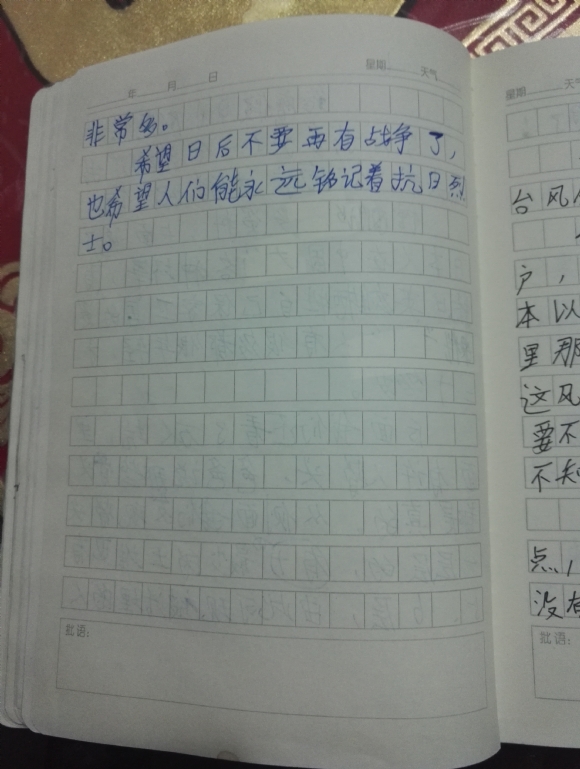 年 月 日 星期 天气
非常多。
希望日后不要再有战争了，
也希望人们能永远铭记着抗日烈
士。
批语：
星期 天
台风
户，
本以
里那
这风
要不
不知
点，
没有
批语：